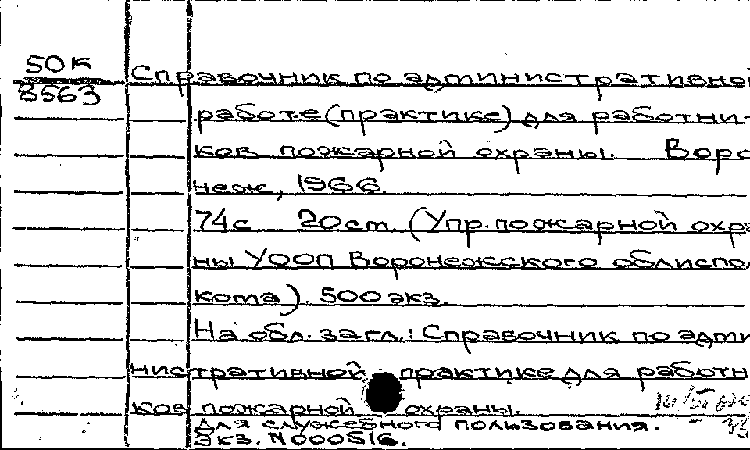 50к
8563
Справочник по административной
работе (практике) для работни-
ков пожарной охраны. Воро
неж, 1966.
74с 20см. (Упр. пожарной охра
ны УООП Воронежского облиспол
кома). 500 экз.
На обл. загл.: Справочник по адми
нистративной практике для работн
ков пожарной охраны.
Для служебного пользования.
Экз. N000516.